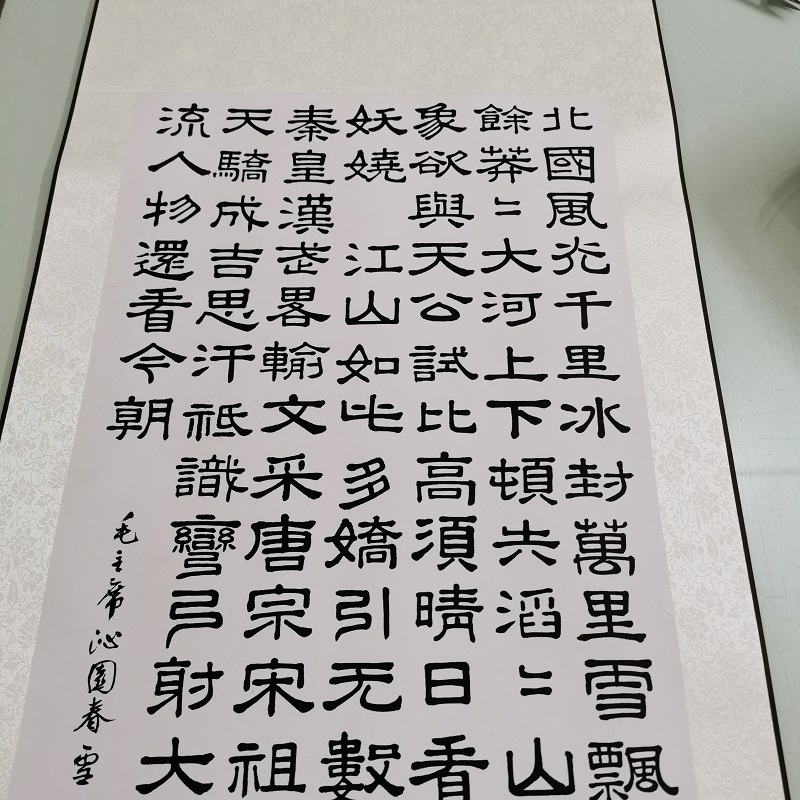 北國風光千里冰封萬里雪飄
餘莽〻大河上下頓失滔〻山
象欲與天公試比高須晴日看
妖嬈 江山如此多嬌引无數
秦皇漢武畧輸文采唐宗宋祖
天驕成吉思汗祗識彎弓射大
流人物還看今朝
毛主席沁園春雪